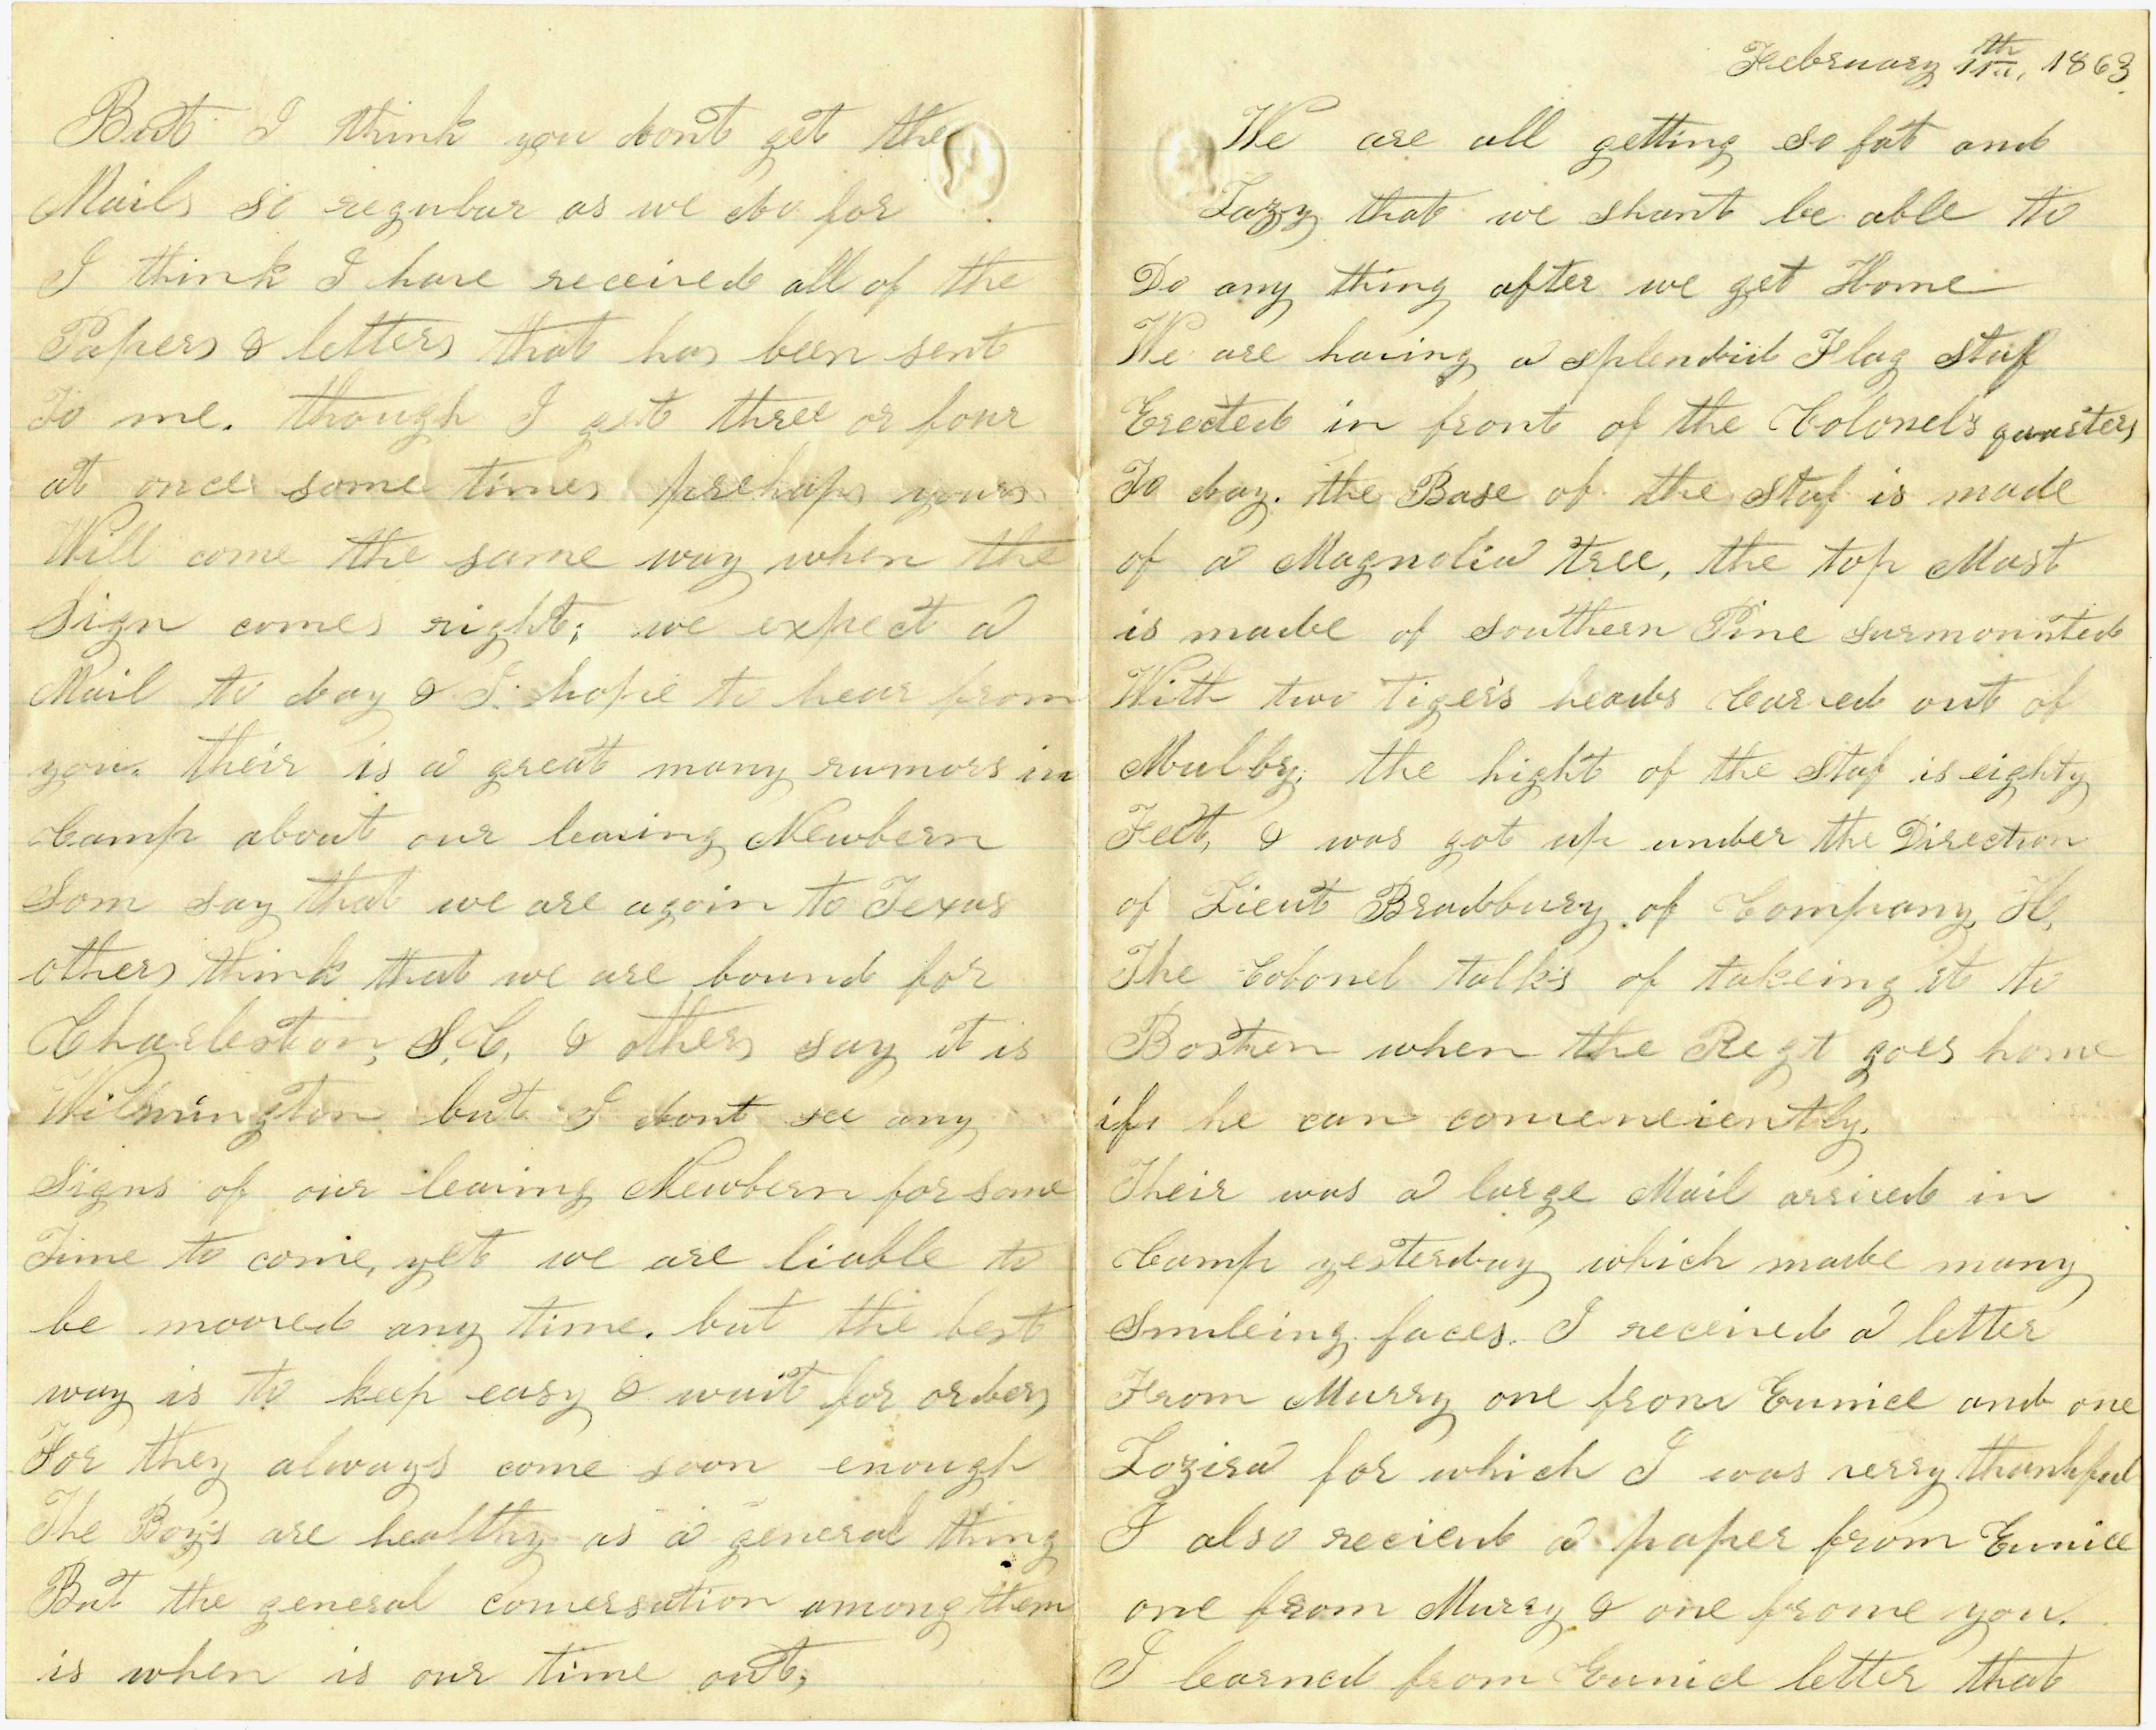 But I think you dont get the
Mails so regular as we do for
I think I have received all of the
Papers & letters that has been sent
To me. though I get three or four
at once some times prehaps yours
Will come the same way when the
Sign comes right; we expect a
Mail to day & I hope to hear from
you. their is a great many rumors in
Camp about our leaving Newbern
Som say that we are agoin to Texas
others think that we are bound for
Charleston, S.C. & others say it is
Wilmington but I dont see any
Signs of our leaving Newbern for some
Time to come, yet we are liable to
be mooved any time. but the best
way is to keep easy & wait for orders
For they always come soon enough
The Boys are healthy as a general thing
But the general conversation among them
is when is our time out;
February 11th, 1863.
We are all getting so fat and
Lazy that we shant be able to
Do any thing after we get Home
We are having a splendid Flag Staf
Erected in front of the Colonel's quarters
To day. the Base of the Staf is made
of a Magnolia tree, the top Mast
is made of southern Pine surmounted
With two tiger's heads Carved out of
Mulby; the hight of the Staf is eighty
Feet, & was got up under the Direction
of Lieut Bradbury of Company, H,
The Colonel talks of takeing it to
Boston when the Regt goes home
if he can conveneiently.
Their was a large Mail arrived in
Camp yesterday which made many
Smileing faces. I received a letter
From Murry one from Eunice and one
Lozira for which I was verry thankful
I also recieved a paper from Eunice
one from Murry & one frome you.
I learned from Eunice letter that